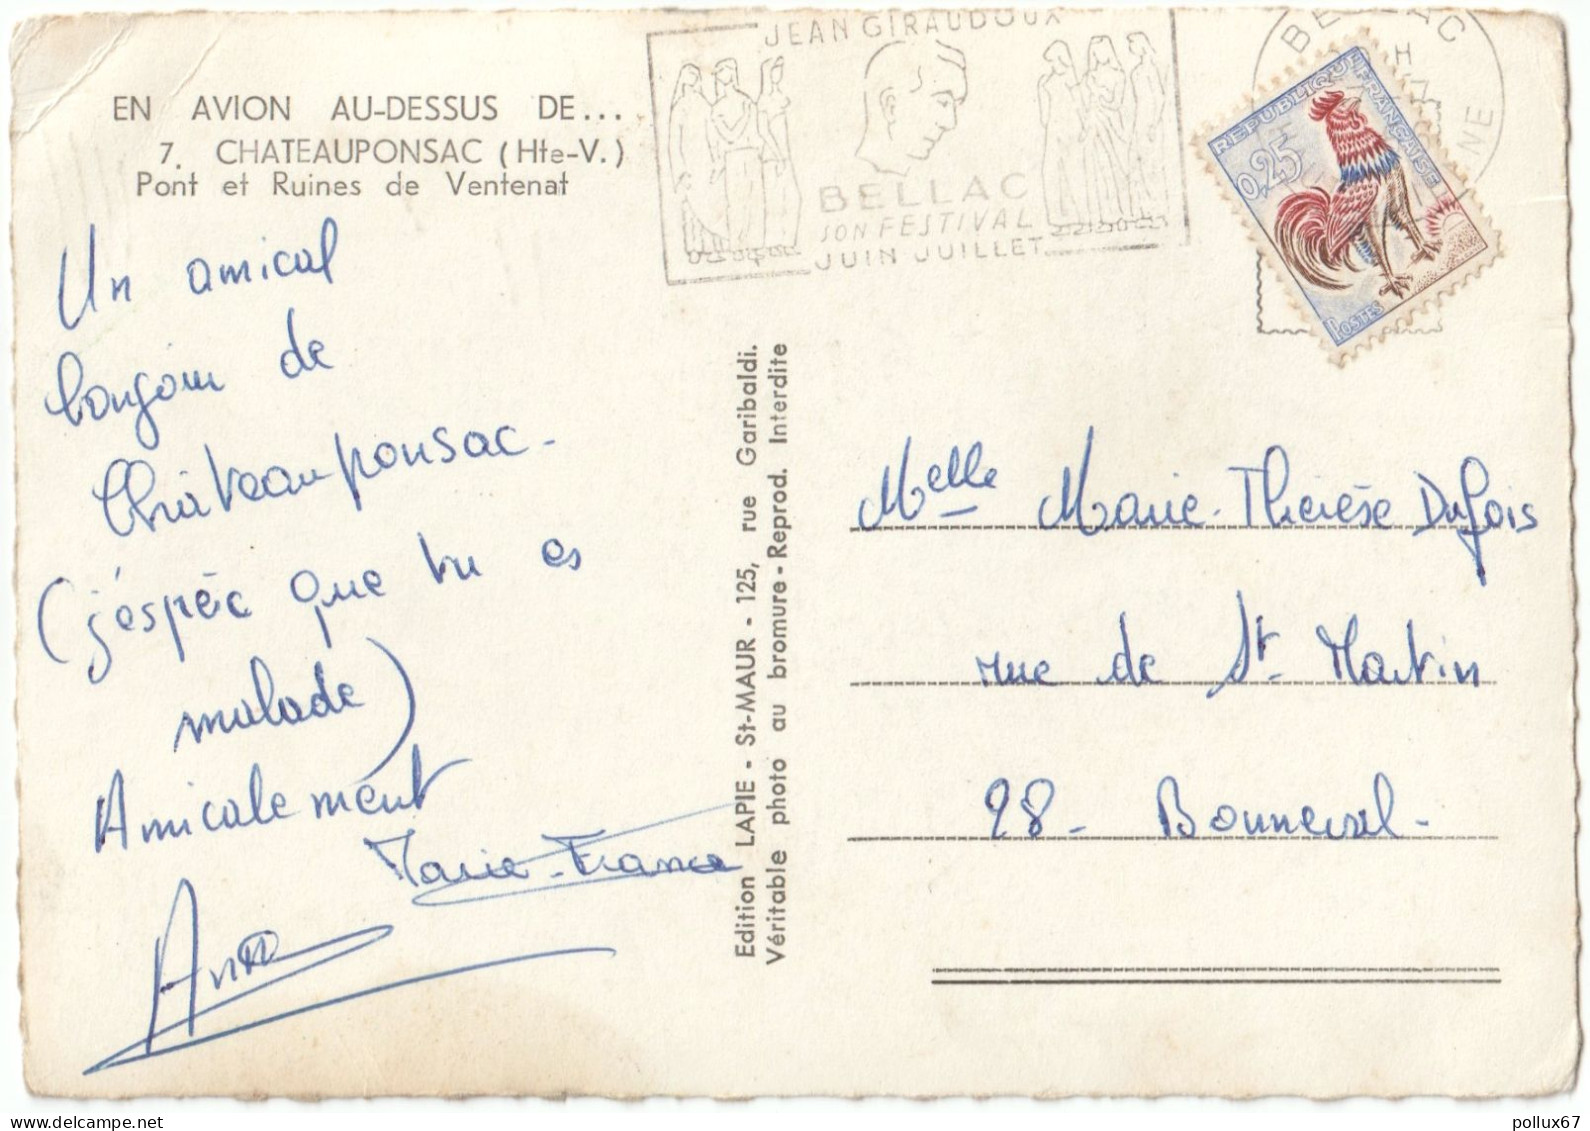 EN AVION AU-DESSUS DE...
7. CHATEAUPONSAC (Hte-V.)
Pont et Ruines de Ventenat
Un amical
bonjour de
Châteauponsac-
(j'éspèc que tu es
malade)
Amicalement
Marie-France
Anne
Edition LAPIE - St-MAUR - 125, rue Garibaldi.
Véritable photo au bromure - Reprod. Interdite
JEAN GIRAUDOUX
BELLAC
SON FESTIVAL
JUIN JUILLET
BELLAC
H
NE
REPUBLIQUE FRANÇAISE
0,25
POSTES
Melle Marie-Thérèse Dufois
rue de St-Martin
28- Bonneval-
pollux67